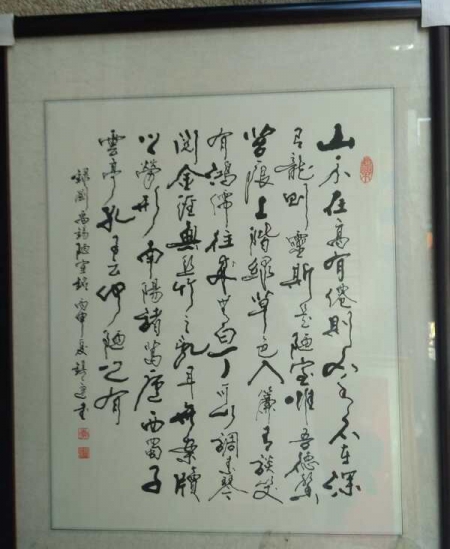 山不在高有僊則名水不在深
有龍則靈斯是陋室唯吾德馨
苔痕上階綠草色入簾青談笑
有鴻儒往來無白丁可以調素琴
閱金經無絲竹之亂耳無案牘
之勞形南陽諸葛廬西蜀子
雲亭孔子云何陋之有
錄劉禹錫陋室銘丙申夏書